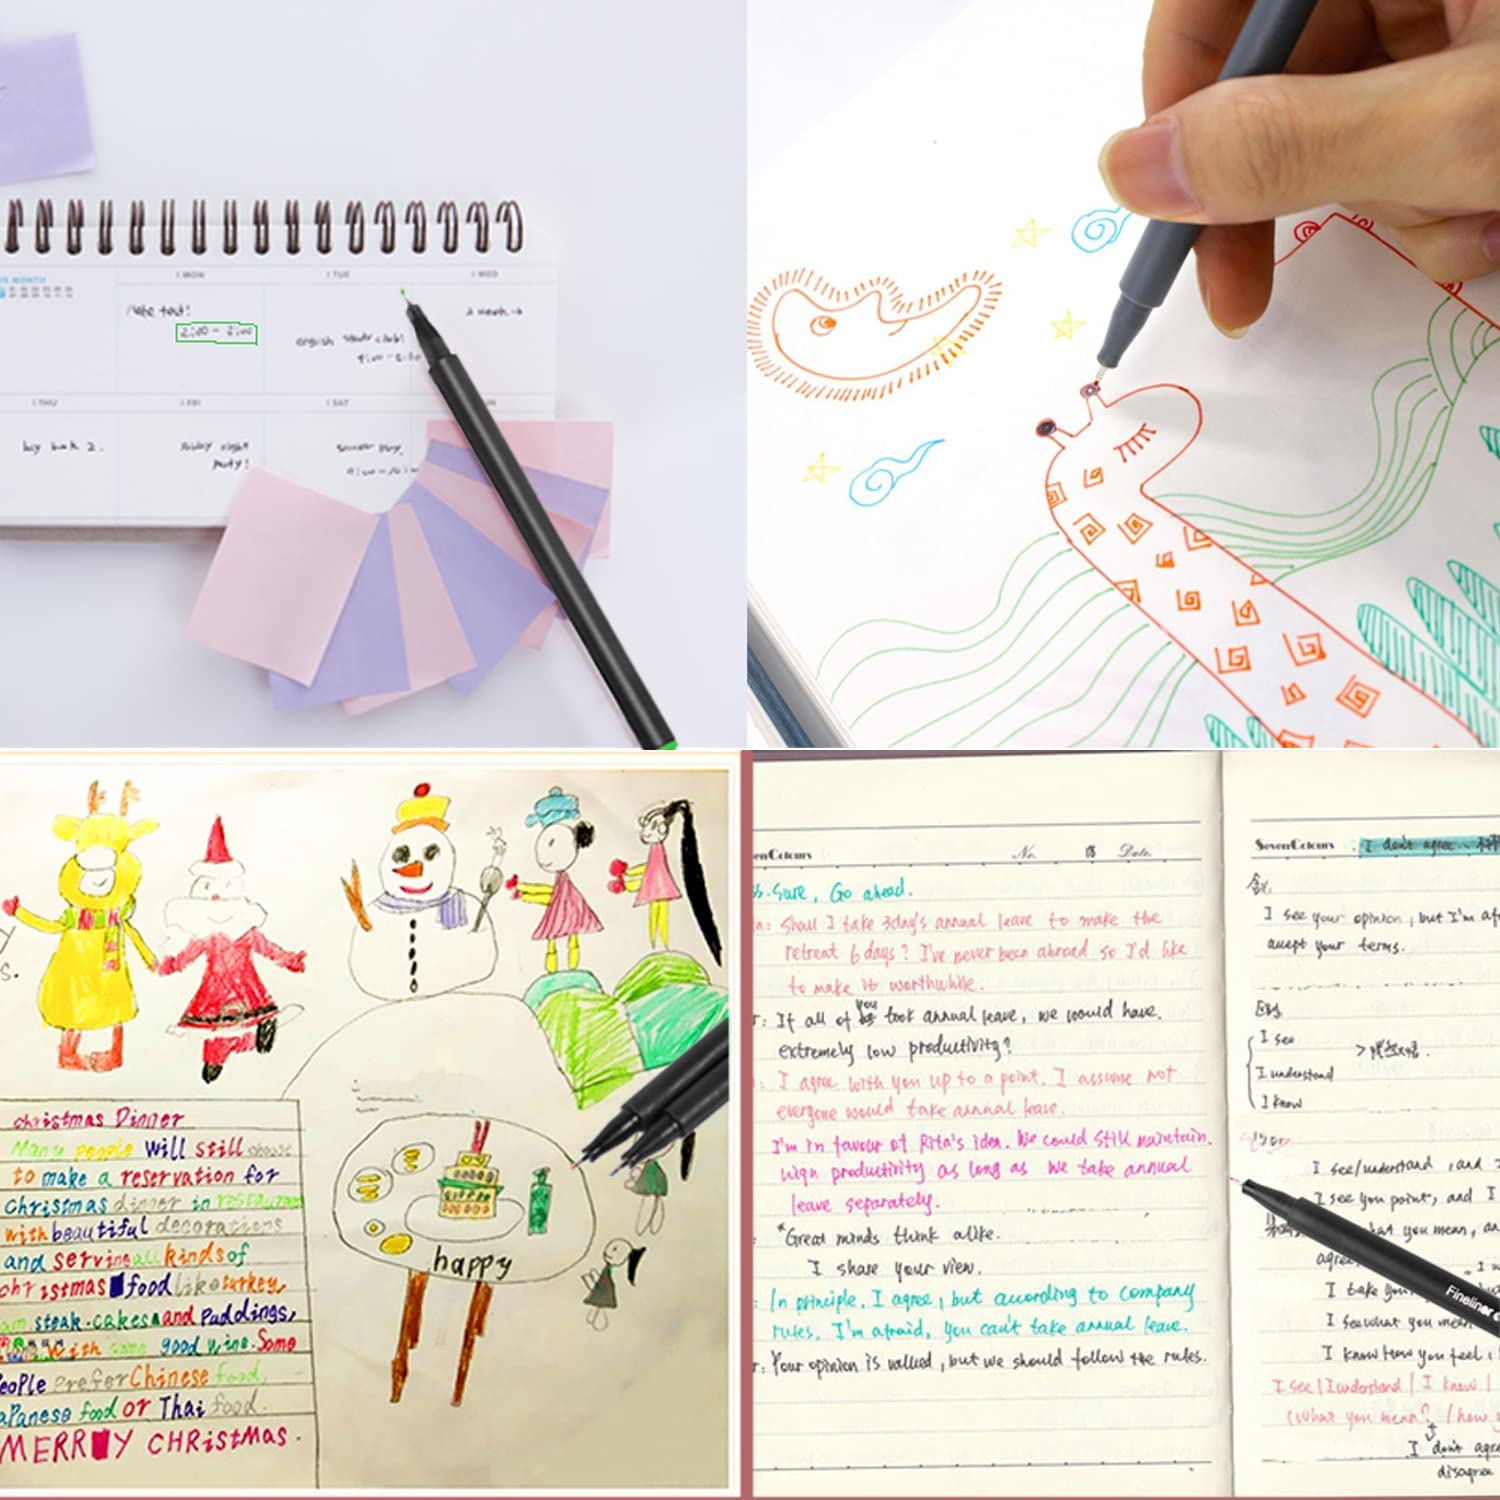 I MON
I TUE
I WED
2:00 - 2:00
english study club!
2 week →
I THU
I FRI
I SAT
friday night
party!
christmas Dinner
Many people will still choose
to make a reservation for
Christmas dinner in restaurant
with beautiful decorations
and serving all kinds of
christmas food like turkey,
steak. cakes and Puddings,
with some good wine. Some
People prefer Chinese food,
apanese food or Thai food.
MERRY CHRistMas.
happy
No. Date.
Sure, Go ahead.
Shall I take 3day's annual leave to make the
retreat 6 days? I've never been abroad so I'd like
to make it worthwhile.
If all of you took annual leave, we would have.
extremely low productivity?
I agree with you up to a point. I assume not
everyone would take annual leave.
I'm in favour of Rita's idea. We could still maintain.
high productivity as long as we take annual
leave separately.
*Great minds think alike.
I share your view.
In principle, I agree, but according to company
rules, I'm afraid, you can't take annual leave.
Your opinion is valued, but we should follow the rules.
SevenColours
I don't agree.
I see your opinion, but I'm
accept your terms.
I see
I understand
I know
I see/understand, and I
I see you point, and I
hat you mean, an
agree
I take you
I see what you mean
I know how you feel,
I see / I understand / I know /
(What you mean? / how y
I don't agre
disagree
Fineliner